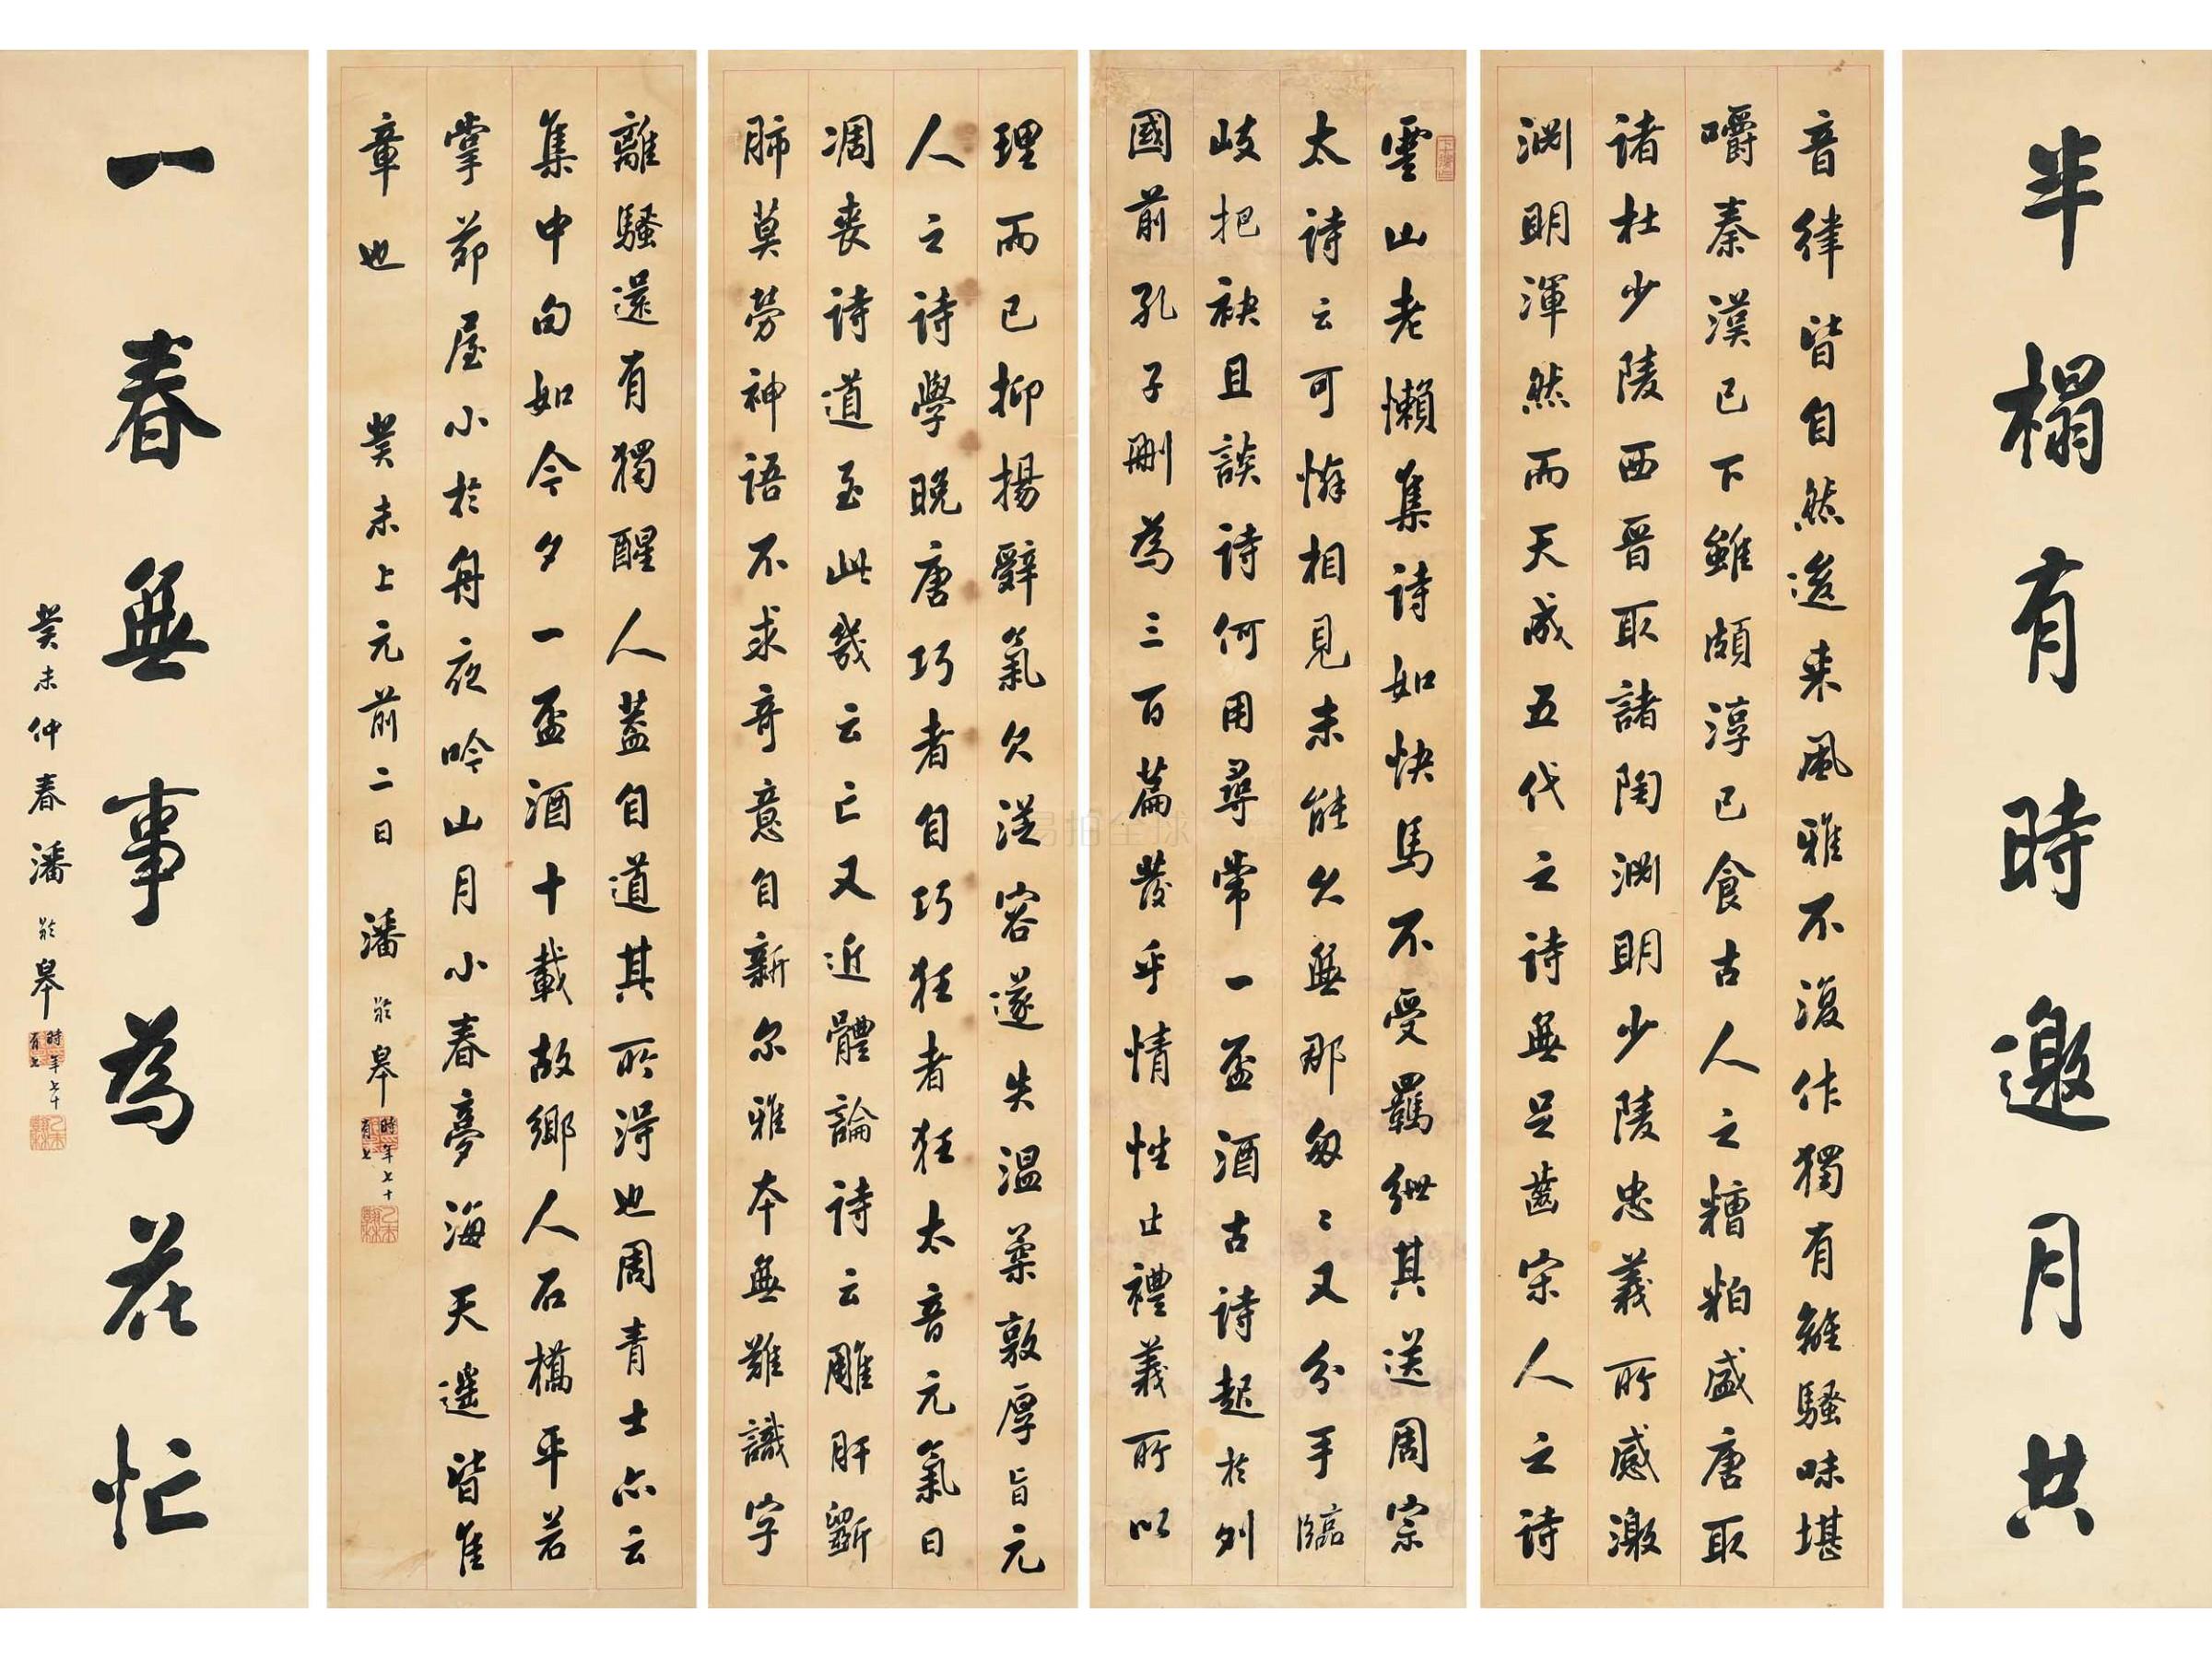 半榻有時邀月共
音律皆自然逡来風雅不復作獨有離騷味堪
嚼秦漢已下雖頗淳已食古人之糟粕盛唐取
诸杜少陵西晋取諸陶渊明少陵忠義所感激
渊明渾然而天成五代之詩無足齒宋人之詩
雲山老懶集詩如快馬不受羈紲其送周宗
太詩云可憐相見未能久無那匆々又分手臨
岐把袂且談詩何用尋常一盃酒古詩起於列
國前孔子刪為三百篇發乎情性止禮義所以
理而已抑揚辭氣欠従容遂失温柔敦厚旨元
人之詩學晚唐巧者自巧狂者狂太音元氣日
凋丧詩道至此幾云亡又近體論詩云雕肝斵
肺莫勞神語不求奇意自新尔雅本無難識字
離騷還有獨醒人蓋自道其所得也周青士亦云
集中句如今夕一盃酒十載故鄉人石橋平若
掌茆屋小於舟夜吟山月小春夢海天遥皆隹
章也 癸未上元前二日 潘齡皋 時年七十有七
乙未翰林
一春無事為花忙
癸未仲春潘齡皋 時年七十有七
乙未翰林